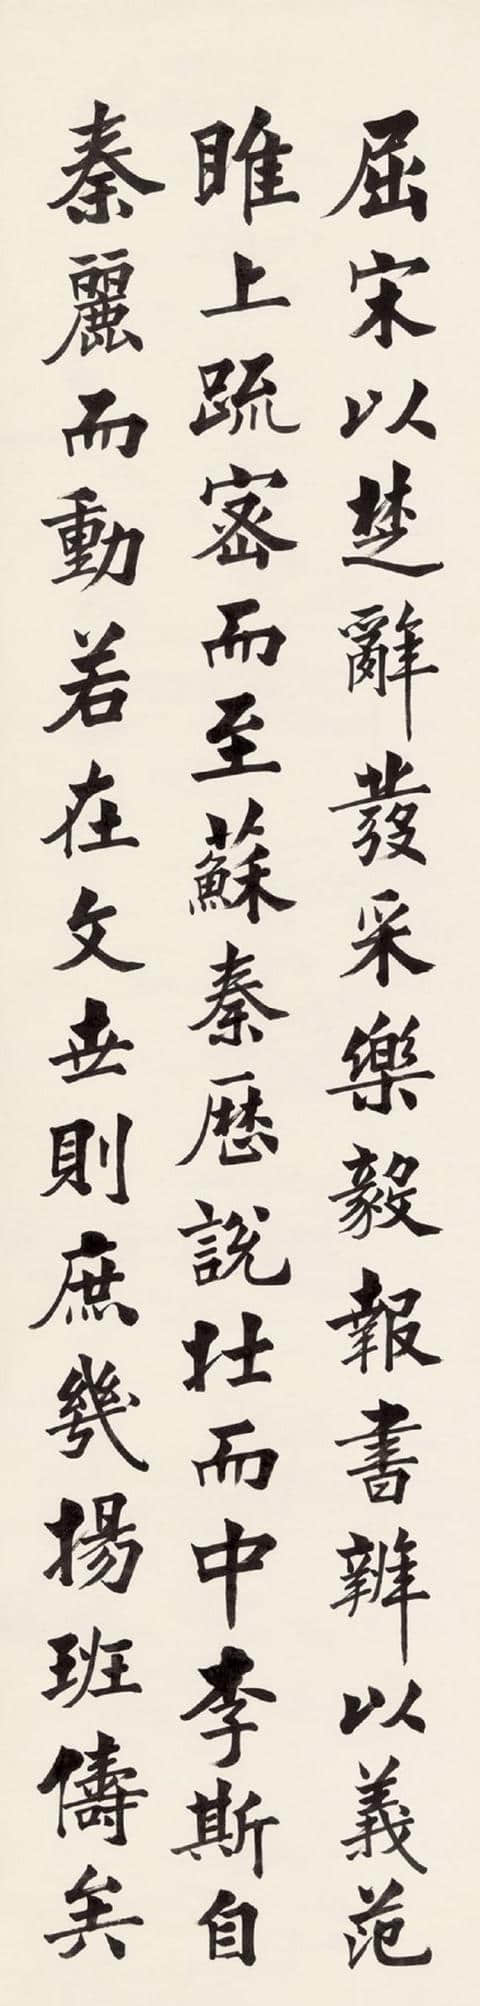 屈宋以楚辭發采樂毅報書辨以義范
雎上疏密而至蘇秦歷說壯而中李斯自
秦麗而動若在文世則庶幾揚班儔矣